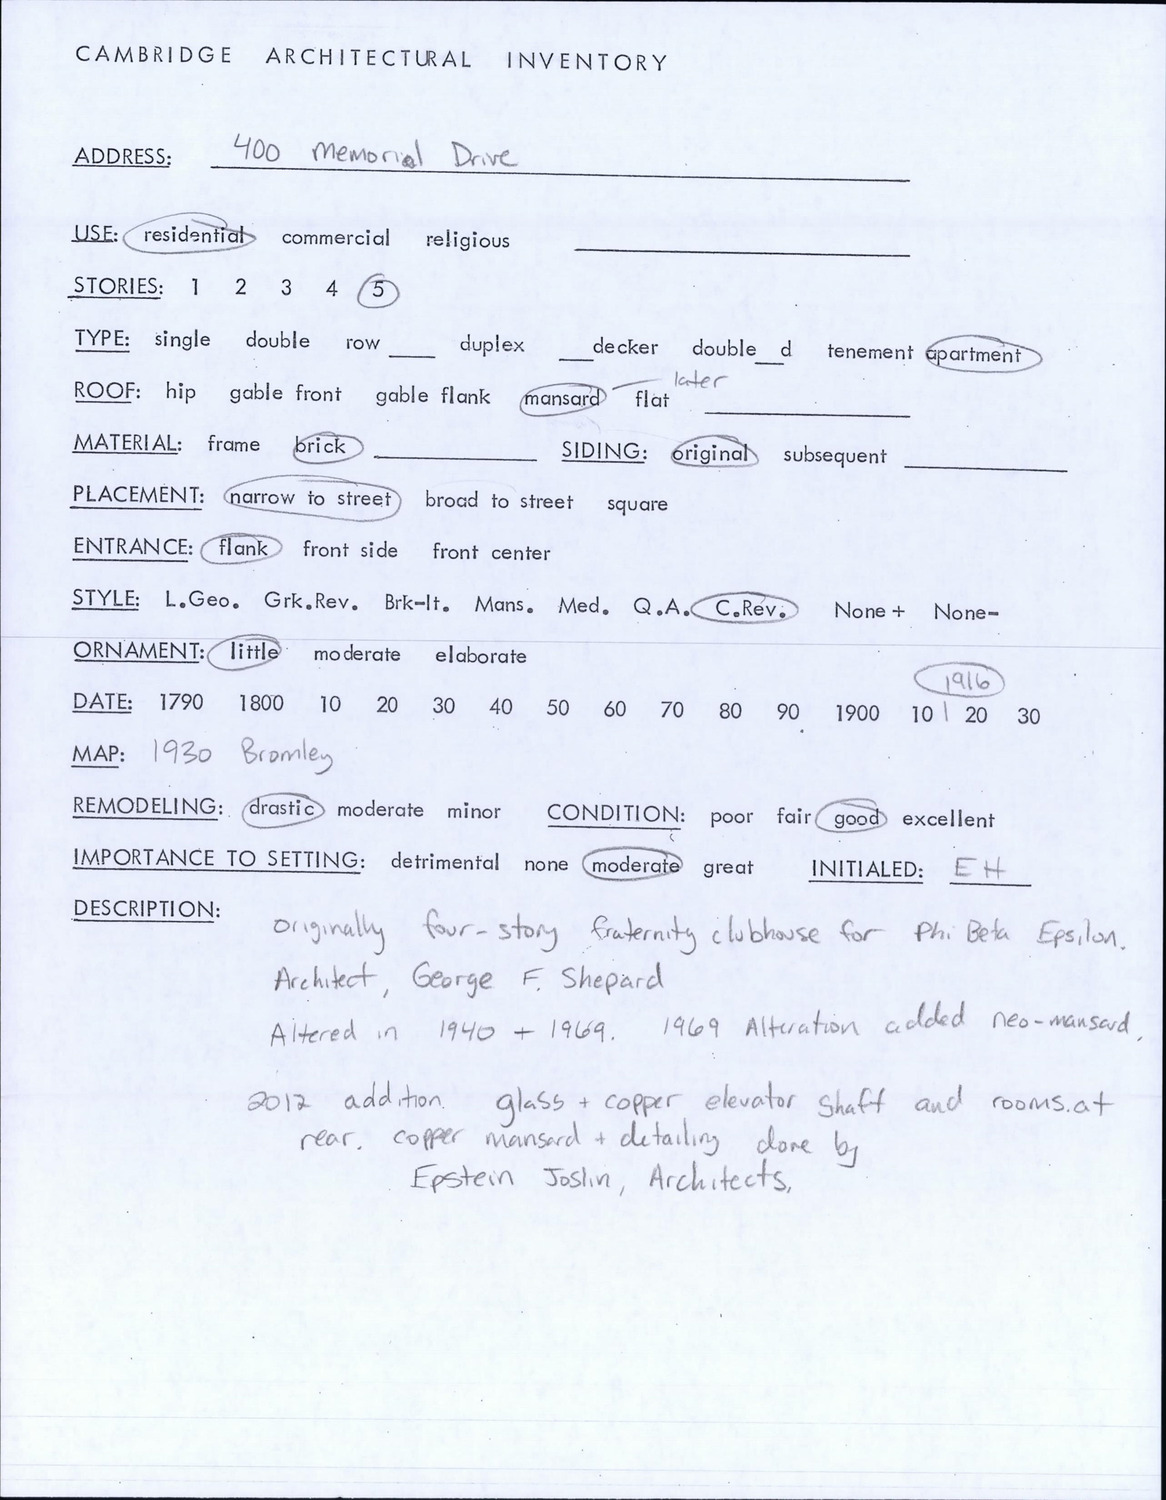 CAMBRIDGE ARCHITECTURAL INVENTORY
ADDRESS: 400 Memorial Drive
USE: residential commercial religious
STORIES: 1 2 3 4 5
later
TYPE: single double row ___ duplex ___decker double__d tenement apartment
ROOF: hip gable front gable flank mansard flat
MATERIAL: frame brick SIDING: original subsequent
PLACEMENT: narrow to street broad to street square
ENTRANCE: flank front side front center
STYLE: L.Geo. Grk.Rev. Brk-It. Mans. Med. Q.A. C.Rev. None+ None-
ORNAMENT: little moderate elaborate
1916
DATE: 1790 1800 10 20 30 40 50 60 70 80 90 1900 10 20 30
MAP: 1930 Bromley
REMODELING: drastic moderate minor CONDITION: poor fair good excellent
IMPORTANCE TO SETTING: detrimental none moderate great INITIALED: EH
DESCRIPTION: Originally four-story fraternity clubhouse for Phi Beta Epsilon.
Architect, George F. Shepard
Altered in 1940 + 1969. 1969 Alteration added neo-mansard.
2012 addition. glass + copper elevator shaft and rooms at
rear. copper mansard + detailing done by
Epstein Joslin, Architects.